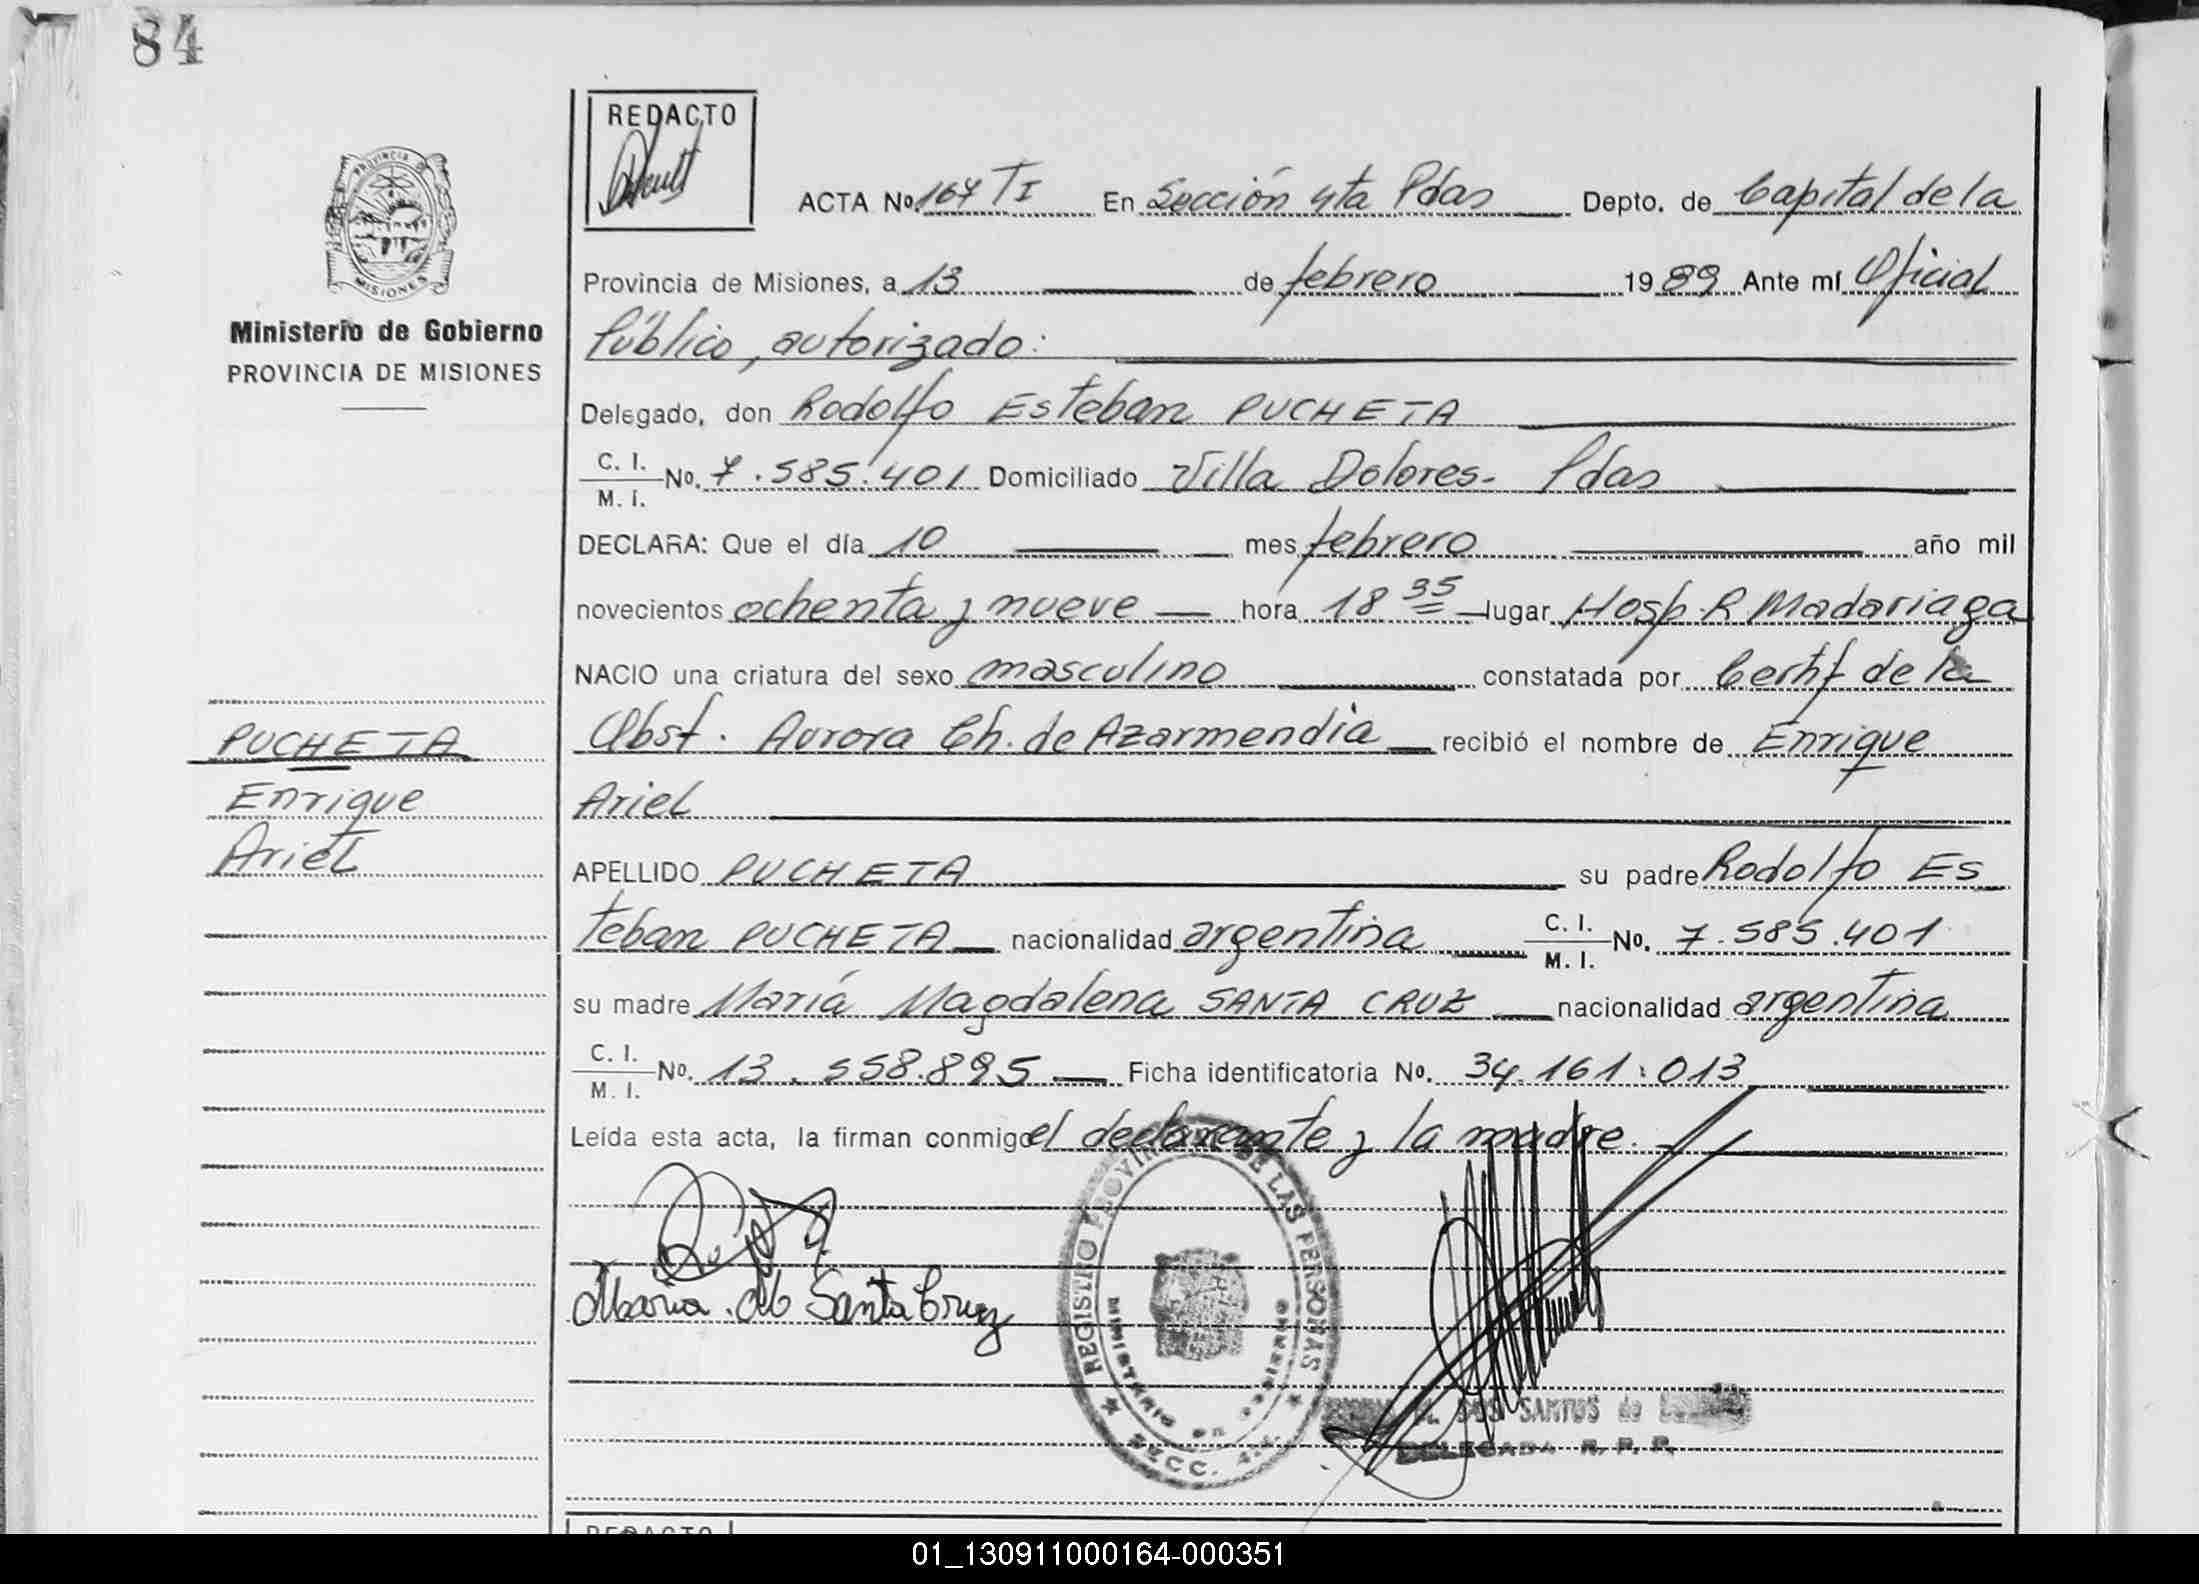 84
REDACTO
ACTA Nº 167 TI En Sección 4ta Pdas Depto. de Capital de la
PROVINCIA DE MISIONES
Provincia de Misiones, a 13 de febrero 1989 Ante mí Oficial
Ministerio de Gobierno
PROVINCIA DE MISIONES
Público, autorizado:
Delegado, don Rodolfo Esteban PUCHETA
C. I. / M. I. No. 7.585.401 Domiciliado Villa Dolores - Pdas
DECLARA: Que el día 10 mes febrero año mil
novecientos ochenta y nueve hora 18 35 lugar Hosp. R Madariaga
NACIO una criatura del sexo masculino constatada por Certif de la
PUCHETA
Obst. Aurora Ch. de Azarmendia recibió el nombre de Enrique
Enrique
Ariel
Ariel
APELLIDO PUCHETA su padre Rodolfo Es
teban PUCHETA nacionalidad argentina C. I. / M. I. No. 7.585.401
su madre María Magdalena SANTA CRUZ nacionalidad argentina
C. I. / M. I. No. 13.558.895 Ficha identificatoria No. 34.161.013
Leída esta acta, la firman conmigo el declarante y la madre.
María. M Santa Cruz
REGISTRO PROVINCIAL DE LAS PERSONAS
MINISTERIO DE GOBIERNO
SECC. 4ta.
DOS SANTOS de
DELEGADA R. P. P.
REDACTO
01_130911000164-000351